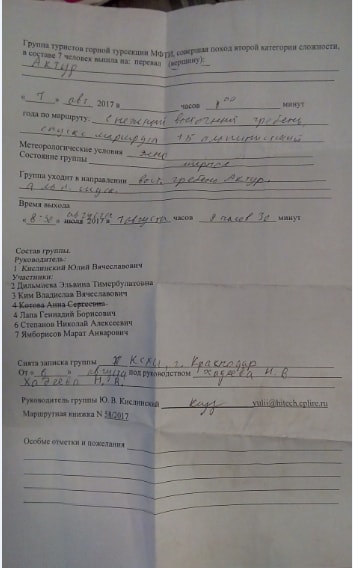 Группа туристов горной турсекции МФТИ, совершая поход второй категории сложности,
в составе 7 человек вышла на: перевал (вершину):
Актур
« 1 » авг 2017 в часов 8 00 минут
года по маршруту: восточный гребень
спуск маршрута 1Б
Метеорологические условия ясно
Состояние группы
Группа уходит в направлении вост. гребень Актур.
Время выхода
« 8:30 » июля 2017 1 августа часов минут
Состав группы.
Руководитель:
1 Кислинский Юлий Вячеславович
Участники:
2 Дильмиева Эльвина Тимербулатовна
3 Ким Владислав Вячеславович
4 Котова Анна Сергеевна
4 Лапа Геннадий Борисович
6 Степанов Николай Алексеевич
7 Ямборисов Марат Анварович
Снята записка группы г. Краснодар
От « 6 » августа под руководством Хадеева Н. В.
Хадеева Н. В.
Руководитель группы Ю. В Кислинский yuliu@hitech.cplire.ru
Маршрутная книжка N 58/2017
Особые отметки и пожелания